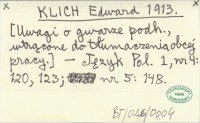 KLICH Edward 1913.
[Uwagi o gwarze podh.,
wtrącone do tłumaczenia obcej
pracy.] — Język Pol. 1, nr 4:
120, 123; nr 5: 148.
BT/026/0004